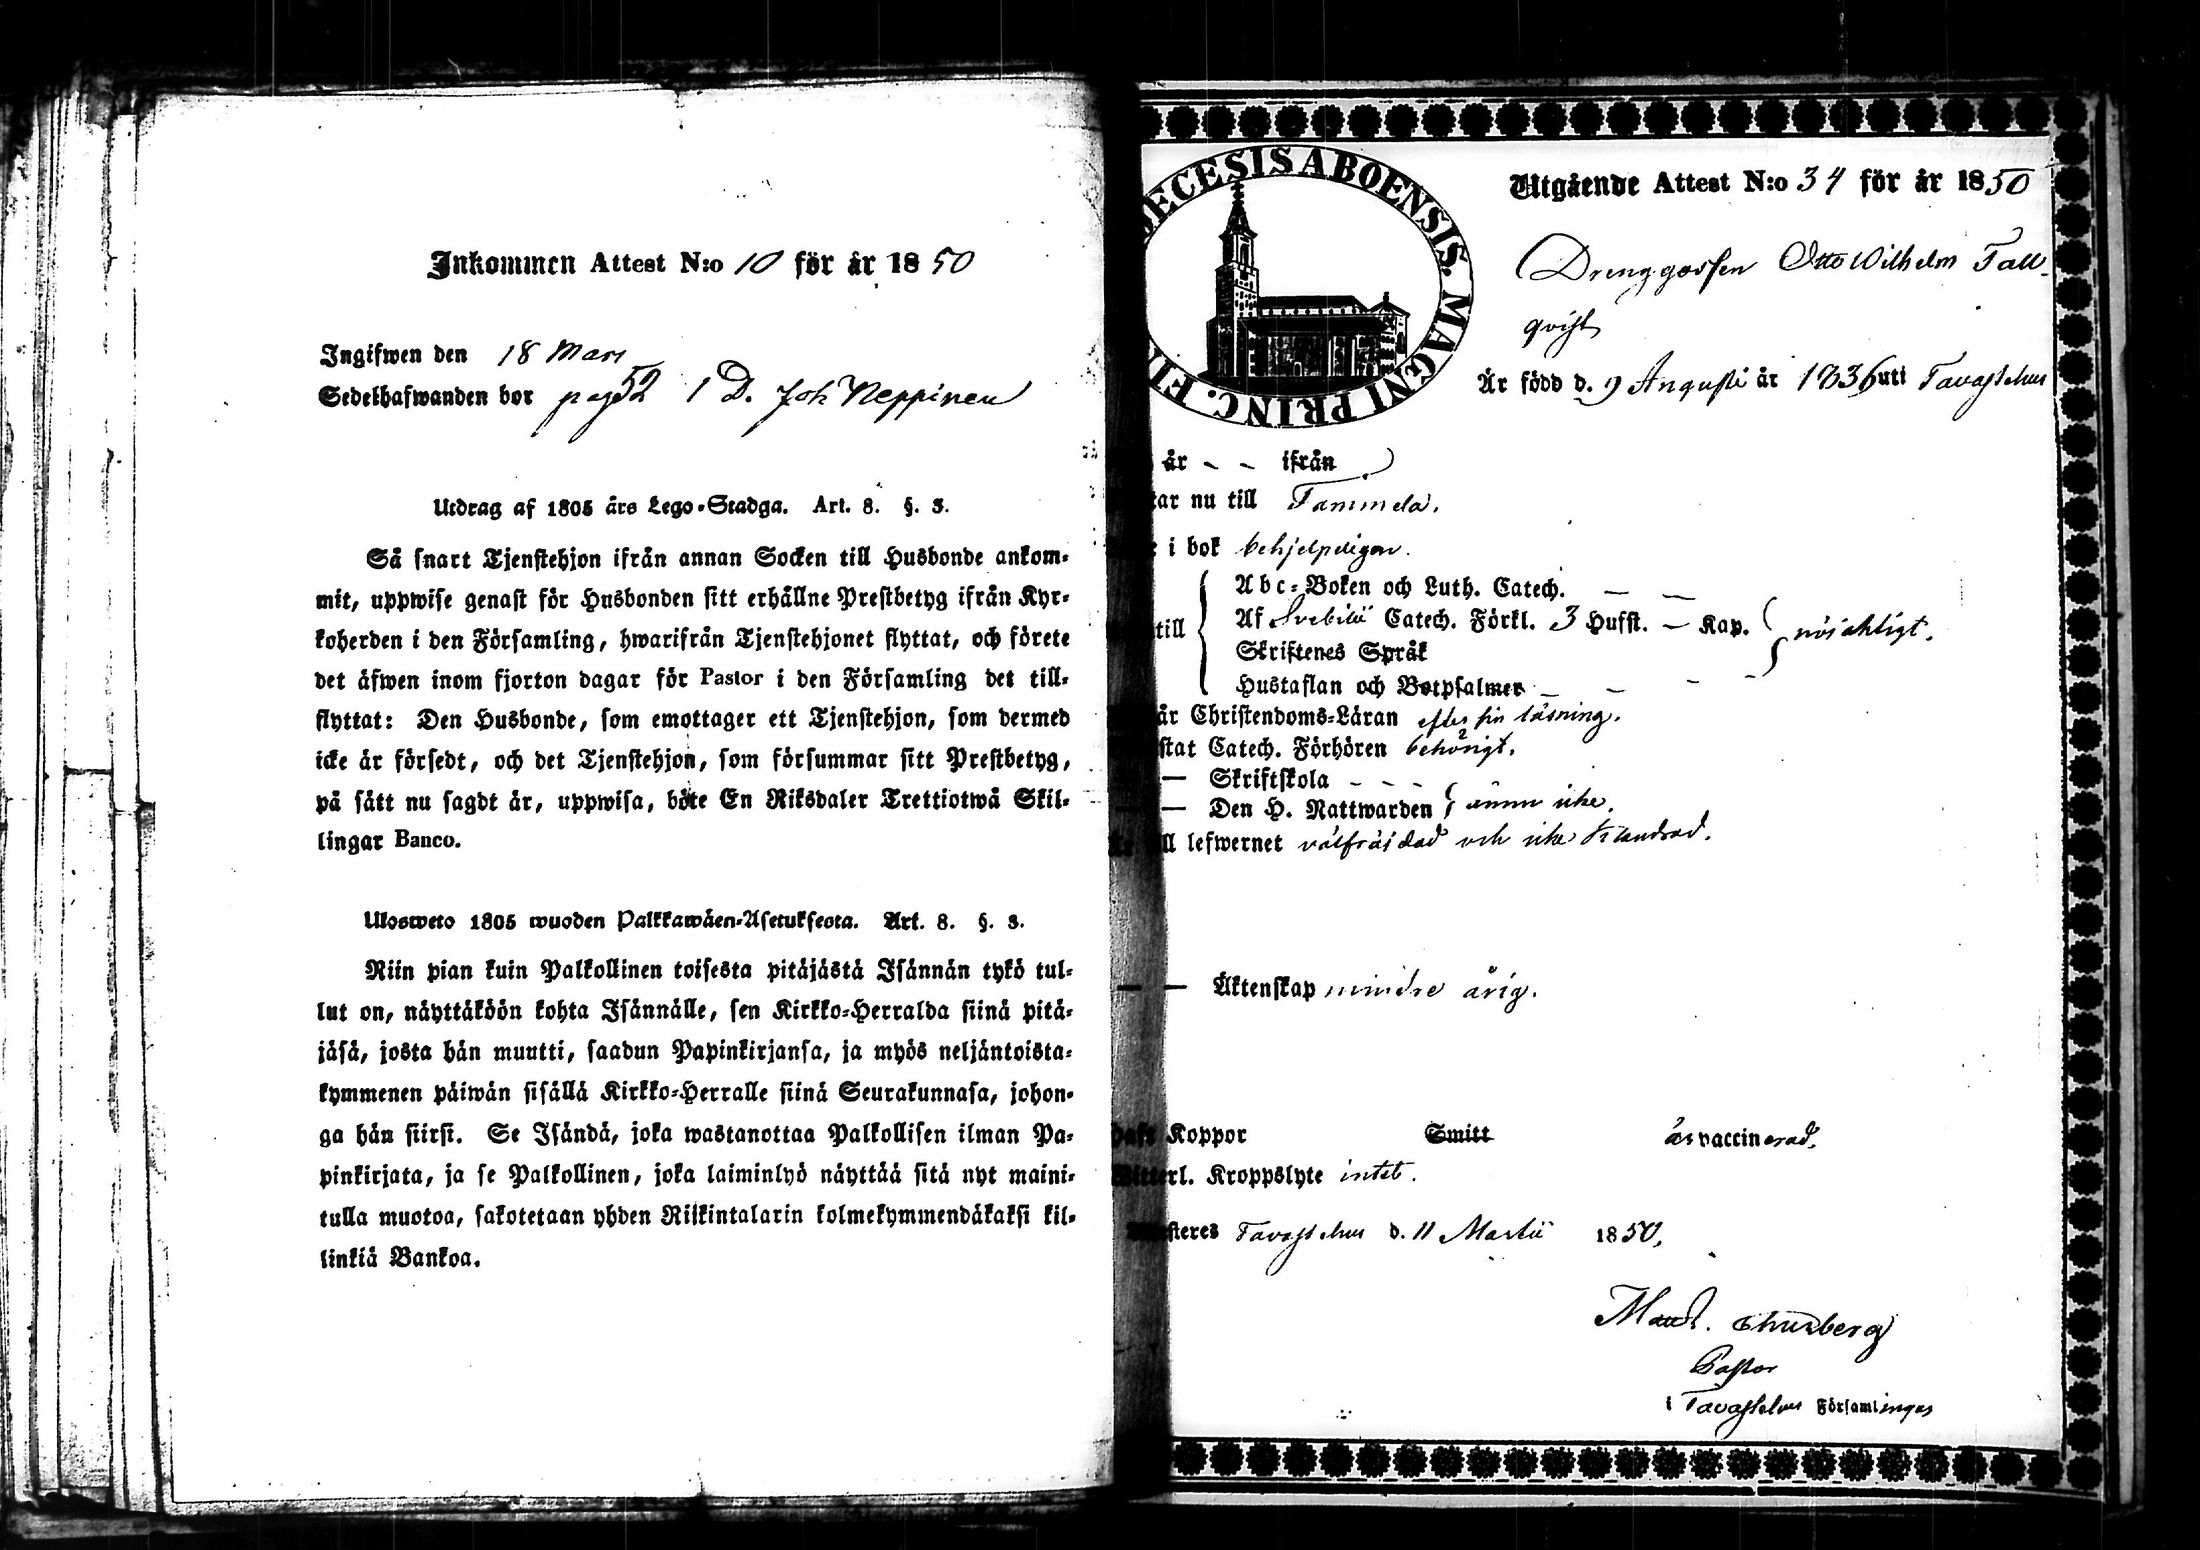 Inkommen Attest N:o 10 för år 1850
Ingifwen den 18 Mars
Sedelhafwanden bor pag 52 1 D. Joh Neppinen
Utdrag af 1805 års Lego-Stadga. Art. 8. §. 3.
Så snart Tjenstehjon ifrån annan Socken till Husbonde ankom-
mit, uppwise genast för Husbonden sitt erhållne Prestbetyg ifrån Kyr-
koherden i den Församling, hwarifrån Tjenstehjonet flyttat, och förete
det äfwen inom fjorton dagar för Pastor i den Församling det till-
flyttat: Den Husbonde, som emottager ett Tjenstehjon, som dermed
icke är försedt, och det Tjenstehjon, som försummar sitt Prestbetyg,
på sätt nu sagdt är, uppwisa, böte En Riksdaler Trettiotwå Skil-
lingar Banco.
Ulosweto 1805 wuoden Palkkawäen-Asetuksesta. Art. 8. §. 3.
Niin pian kuin Palkollinen toisesta pitäjästä Isännän tykö tul-
lut on, näyttäköön kohta Isännälle, sen Kirkko-Herralda siinä pitä-
jäsä, josta hän muutti, saadun Papinkirjansa, ja myös neljäntoista-
kymmenen päiwän sisällä Kirkko-Herralle siinä Seurakunnasa, johon-
ga hän siirsi. Se Isändä, joka wastanottaa Palkollisen ilman Pa-
pinkirjata, ja se Palkollinen, joka laiminlyö näyttää sitä nyt maini-
tulla muotoa, sakotetaan yhden Riikintalarin kolmekymmendäkaksi kil-
linkiä Bankoa.
ECESIS ABOENSIS. MAGNI PRINC. FI
Utgående Attest N:o 34 för år 1850
Drenggossen Otto Wilhelm Tall-
qvist
Är född d. 9 Augusti år 1836 uti Tavastehus
år - - ifrån
tar nu till Tammela.
i bok behjelpligen.
Abc-Boken och Luth. Catech. — —
till Af Svebilii Catech. Förkl. 3 Hufst. — Kap. nöjaktigt.
Skriftenes Språk
Hustaflan och Botpsalmer — — - -
är Christendoms-Läran efter sin läsning.
stat Catech. Förhören behörigt.
— Skriftskola - - -
— Den H. Nattwarden ännu icke.
ll lefwernet välfräjdad och icke klandrad.
— — Äktenskap minderårig.
haft Koppor Smitt är vaccinerad.
Witterl. Kroppslyte intet.
steres Tavastehus d. 11 Martii 1850.
Thurberg
Pastor
i Tavastehus Församlingar